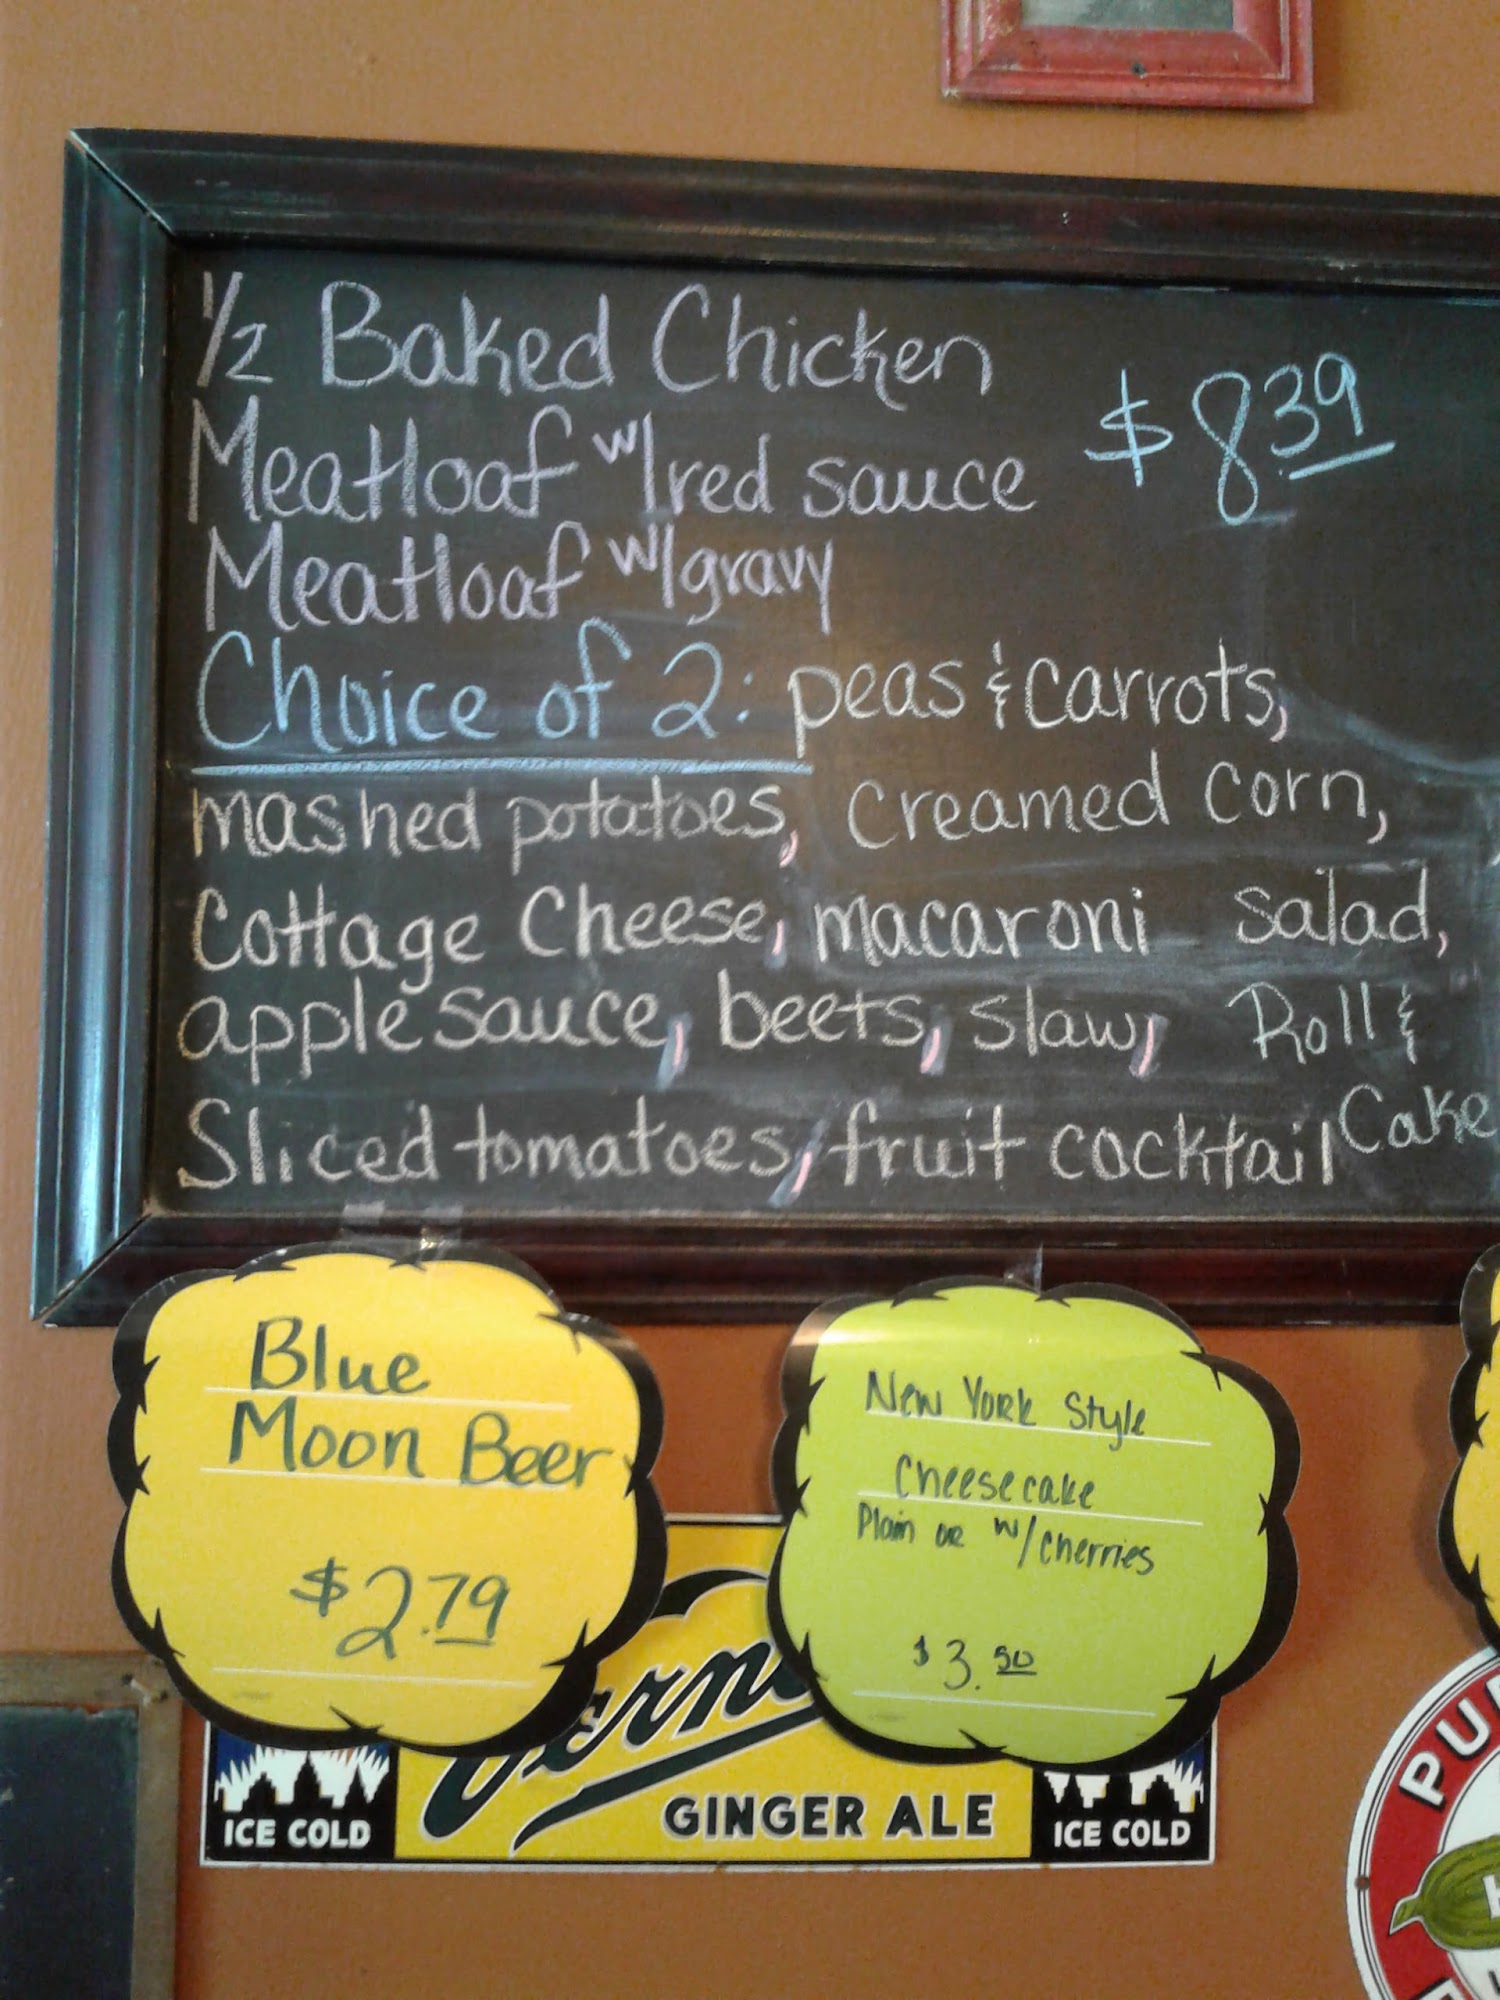 1/2 Baked Chicken
Meatloaf w/red sauce
$8.39
Meatloaf w/gravy
Choice of 2: peas & carrots,
mashed potatoes, creamed corn,
Cottage Cheese, macaroni salad,
apple sauce, beets, slaw, Roll &
Cake
Sliced tomatoes, fruit cocktail
Blue
Moon Beer
$2.79
New York Style
Cheesecake
Plain or w/cherries
$3.50
GINGER ALE
ICE COLD
ICE COLD